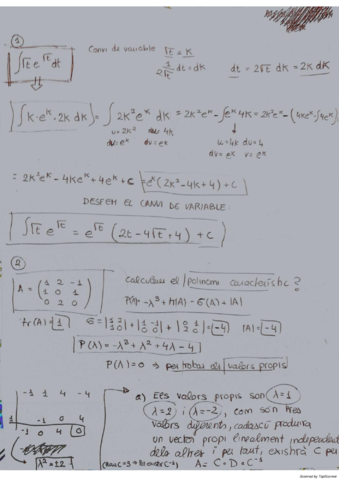 1
Canvi de variable √t = K
∫√t e^√t dt
1/(2√t) dt = dK
dt = 2√t dK = 2K dK
∫K·e^K·2K dK = ∫2K²e^K dK = 2K²e^K - ∫e^K 4K = 2K²e^K - (4Ke^K - ∫4e^K)
u = 2K² du = 4K
u = 4K du = 4
dv = e^K v = e^K
dv = e^K v = e^K
= 2K²e^K - 4Ke^K + 4e^K + C = e^K(2K² - 4K + 4) + C
DESFEM EL CANVI DE VARIABLE:
∫√t e^√t = e^√t (2t - 4√t + 4) + C
2
A = (1 2 -1
1 0 1
0 2 0)
calculau el polinomi característic?
P(λ) = -λ³ + tr(A) - σ(A) + |A|
tr(A) = 1
σ = |1 2| + |1 -1| + |0 1| = -4
|A| = -4
P(λ) = -λ³ + λ² + 4λ - 4
P(λ) = 0 → per trobar els valors propis
-1 1 4 -4
1 -1 0 4
-1 0 4 0
a) Els valors propis son λ=1
λ=2 i λ=-2, com són tres
valors diferents, cadascú produirà
un vector propi linealment independent
dels altres i per tant, existirà C per
A = C·D·C⁻¹